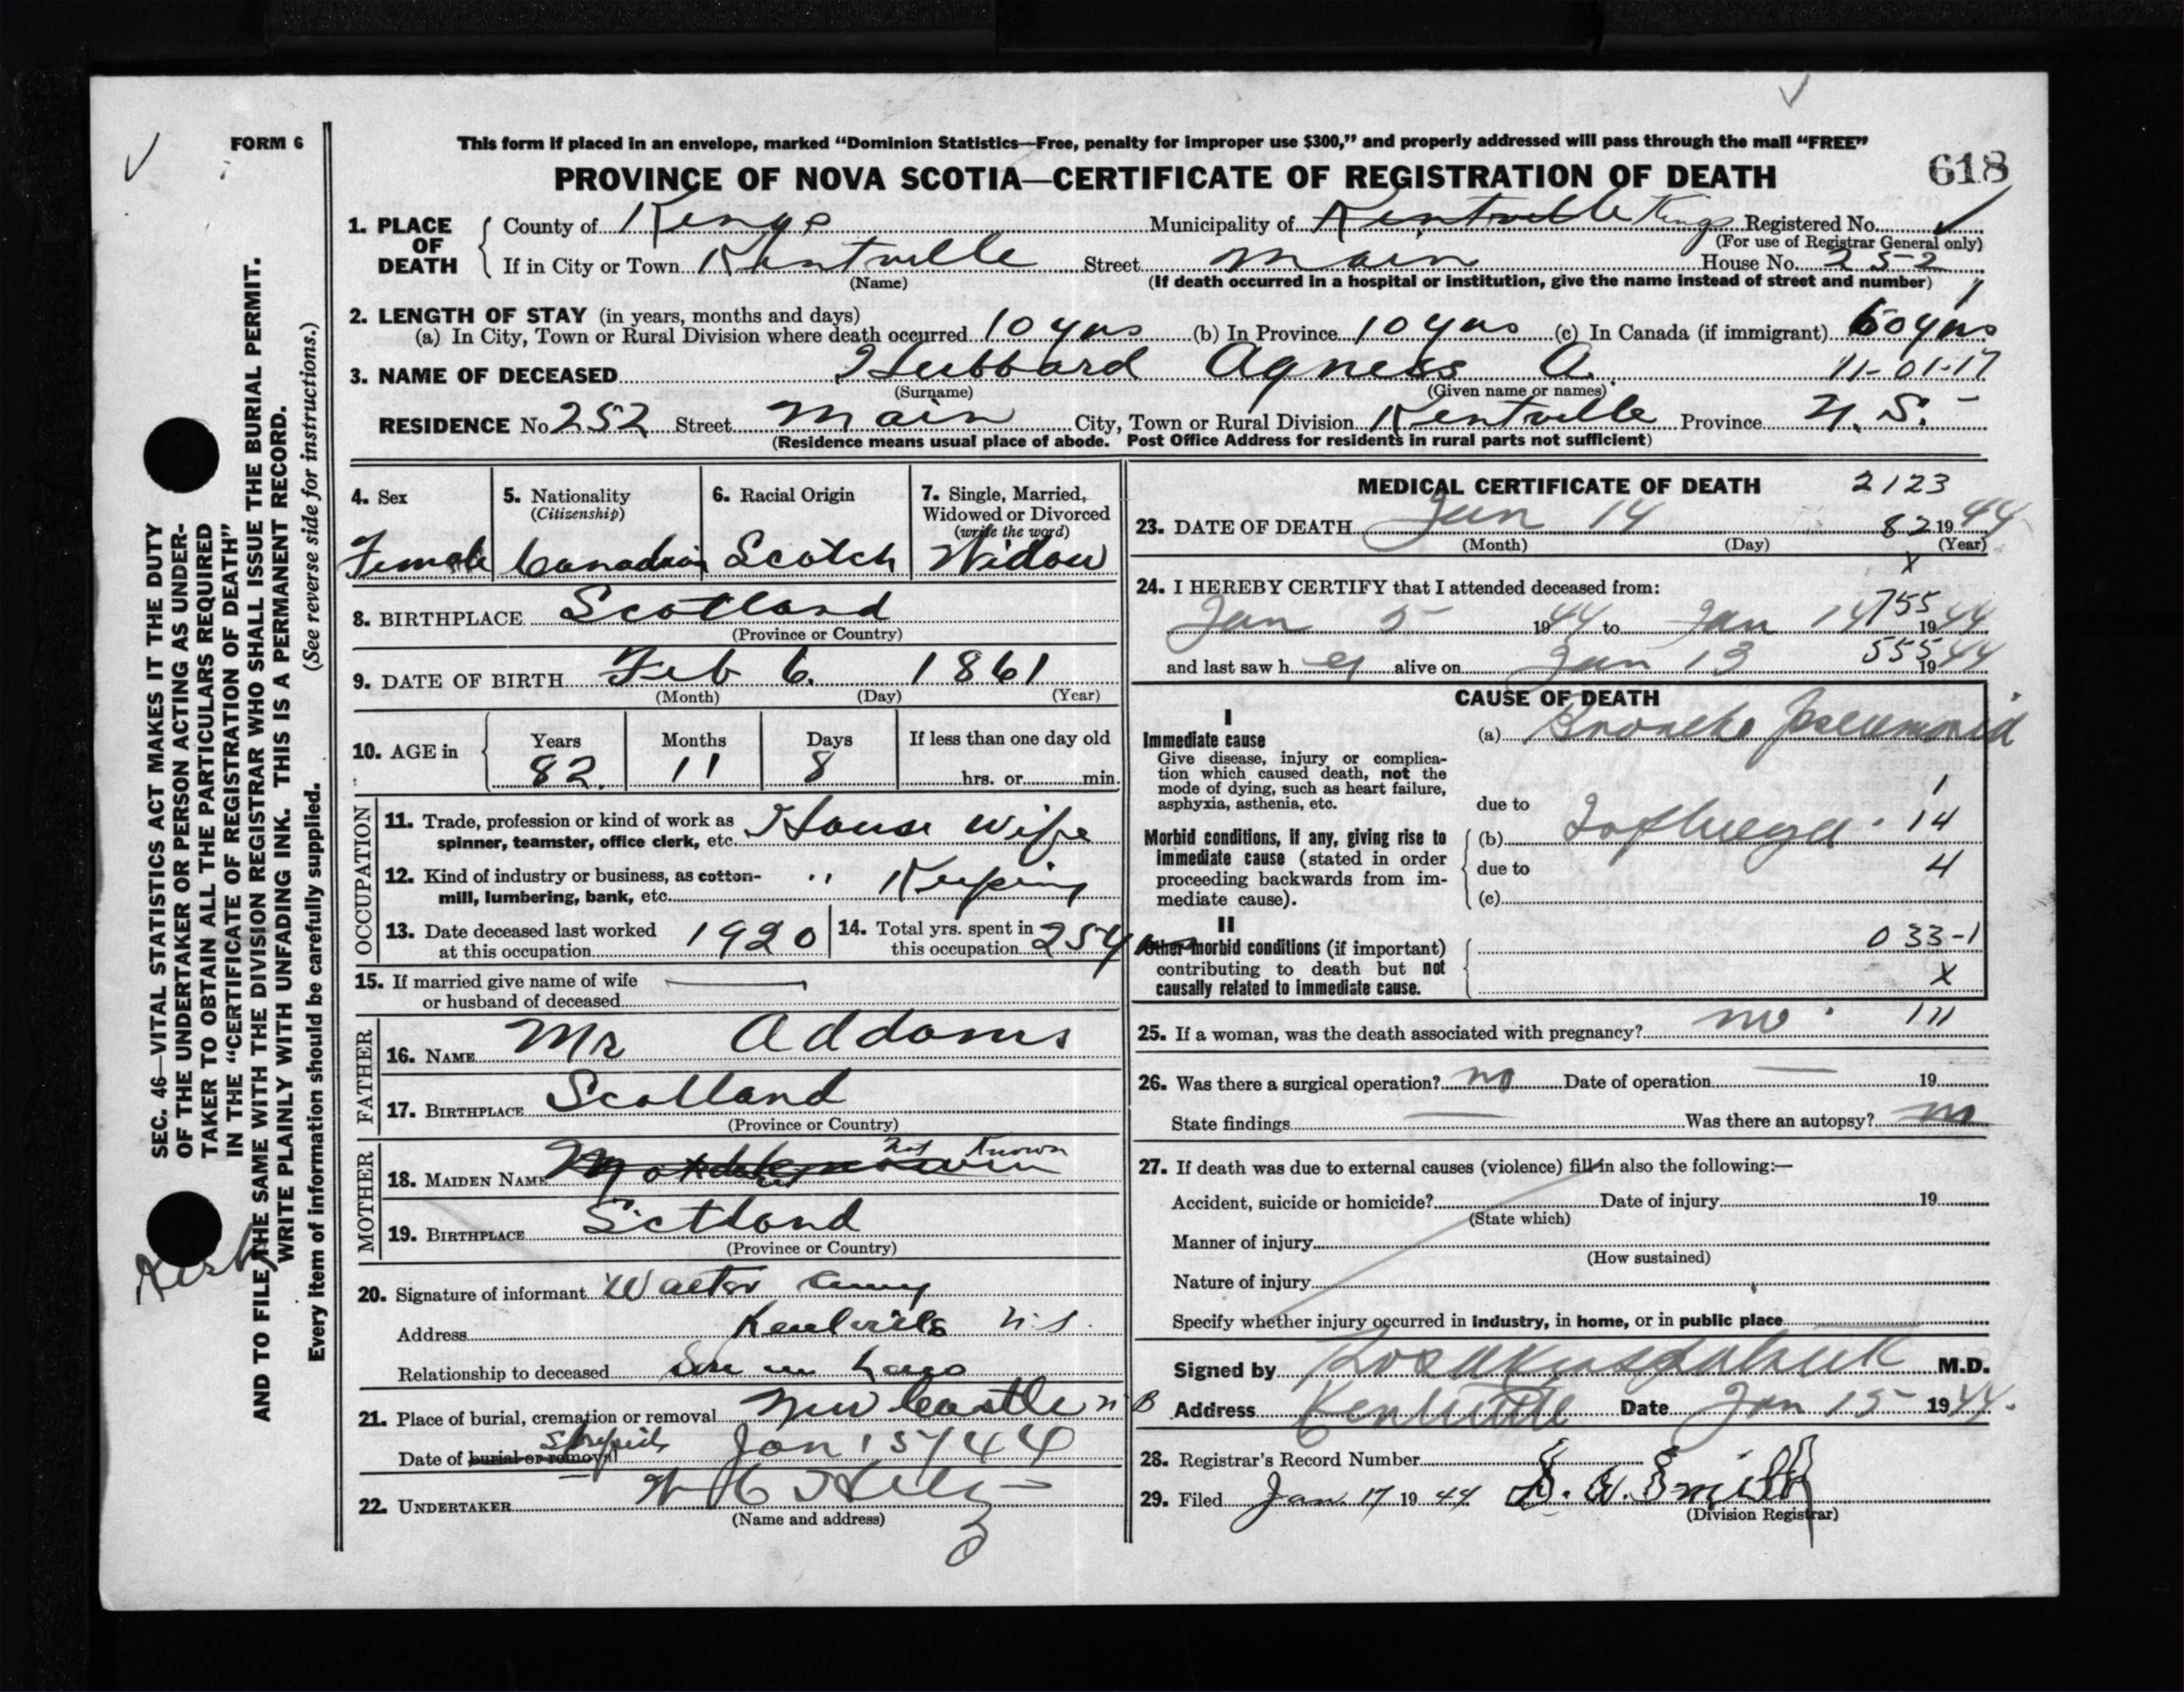 FORM 6
This form if placed in an envelope, marked “Dominion Statistics—Free, penalty for improper use $300,” and properly addressed will pass through the mail “FREE”
618
PROVINCE OF NOVA SCOTIA—CERTIFICATE OF REGISTRATION OF DEATH
1. PLACE OF DEATH
County of Kings Municipality of Kentville Kings Registered No.
(For use of Registrar General only)
If in City or Town Kentville Street Main House No. 252
(Name) (If death occurred in a hospital or institution, give the name instead of street and number)
2. LENGTH OF STAY (in years, months and days)
(a) In City, Town or Rural Division where death occurred 10 yrs (b) In Province 10 yrs (c) In Canada (if immigrant) 60 yrs
3. NAME OF DECEASED Hubbard Agness A. 11-01-17
(Surname) (Given name or names)
RESIDENCE No 252 Street Main City, Town or Rural Division Kentville Province N.S.
(Residence means usual place of abode. Post Office Address for residents in rural parts not sufficient)
4. Sex
Female
5. Nationality
(Citizenship)
Canadian
6. Racial Origin
Scotch
7. Single, Married,
Widowed or Divorced
(write the word)
Widow
8. BIRTHPLACE Scotland
(Province or Country)
9. DATE OF BIRTH Feb 6. 1861
(Month) (Day) (Year)
10. AGE in
Years Months Days If less than one day old
82 11 8 hrs. or min.
OCCUPATION
11. Trade, profession or kind of work as
spinner, teamster, office clerk, etc. House Wife
12. Kind of industry or business, as cotton-
mill, lumbering, bank, etc. " Keeping
13. Date deceased last worked
at this occupation 1920
14. Total yrs. spent in
this occupation 25 yrs
15. If married give name of wife
or husband of deceased
FATHER
16. NAME Mr Addams
17. BIRTHPLACE Scotland
(Province or Country)
MOTHER
18. MAIDEN NAME Not Known
19. BIRTHPLACE Sctland
(Province or Country)
20. Signature of informant Walter
Address Kentville N.S.
Relationship to deceased Son in Law
21. Place of burial, cremation or removal New Castle N B
Date of burial or removal Jan 15/44
22. UNDERTAKER
(Name and address)
MEDICAL CERTIFICATE OF DEATH 2123
23. DATE OF DEATH Jan 14 82 1944
(Month) (Day) (Year)
x
24. I HEREBY CERTIFY that I attended deceased from:
755
Jan 5 1944 to Jan 14 1944
555
and last saw her alive on Jan 13 1944
CAUSE OF DEATH
I
Immediate cause
Give disease, injury or complica-
tion which caused death, not the
mode of dying, such as heart failure,
asphyxia, asthenia, etc.
(a) Broncho Pneumonia
1
due to
Morbid conditions, if any, giving rise to
immediate cause (stated in order
proceeding backwards from im-
mediate cause).
(b) Influenza. 14
due to 4
(c)
II
Other morbid conditions (if important)
contributing to death but not
causally related to immediate cause.
033-1
x
25. If a woman, was the death associated with pregnancy? no. 111
26. Was there a surgical operation? no Date of operation 19
State findings Was there an autopsy? no
27. If death was due to external causes (violence) fill in also the following:—
Accident, suicide or homicide? Date of injury 19
(State which)
Manner of injury
(How sustained)
Nature of injury
Specify whether injury occurred in industry, in home, or in public place
Signed by M.D.
Address Kentville Date Jan 15 1944.
28. Registrar's Record Number
29. Filed Jan. 17 1944 D. W. Smith
(Division Registrar)
SEC. 46—VITAL STATISTICS ACT MAKES IT THE DUTY
OF THE UNDERTAKER OR PERSON ACTING AS UNDER-
TAKER TO OBTAIN ALL THE PARTICULARS REQUIRED
IN THE “CERTIFICATE OF REGISTRATION OF DEATH”
AND TO FILE THE SAME WITH THE DIVISION REGISTRAR WHO SHALL ISSUE THE BURIAL PERMIT.
WRITE PLAINLY WITH UNFADING INK. THIS IS A PERMANENT RECORD.
Every item of information should be carefully supplied. (See reverse side for instructions.)